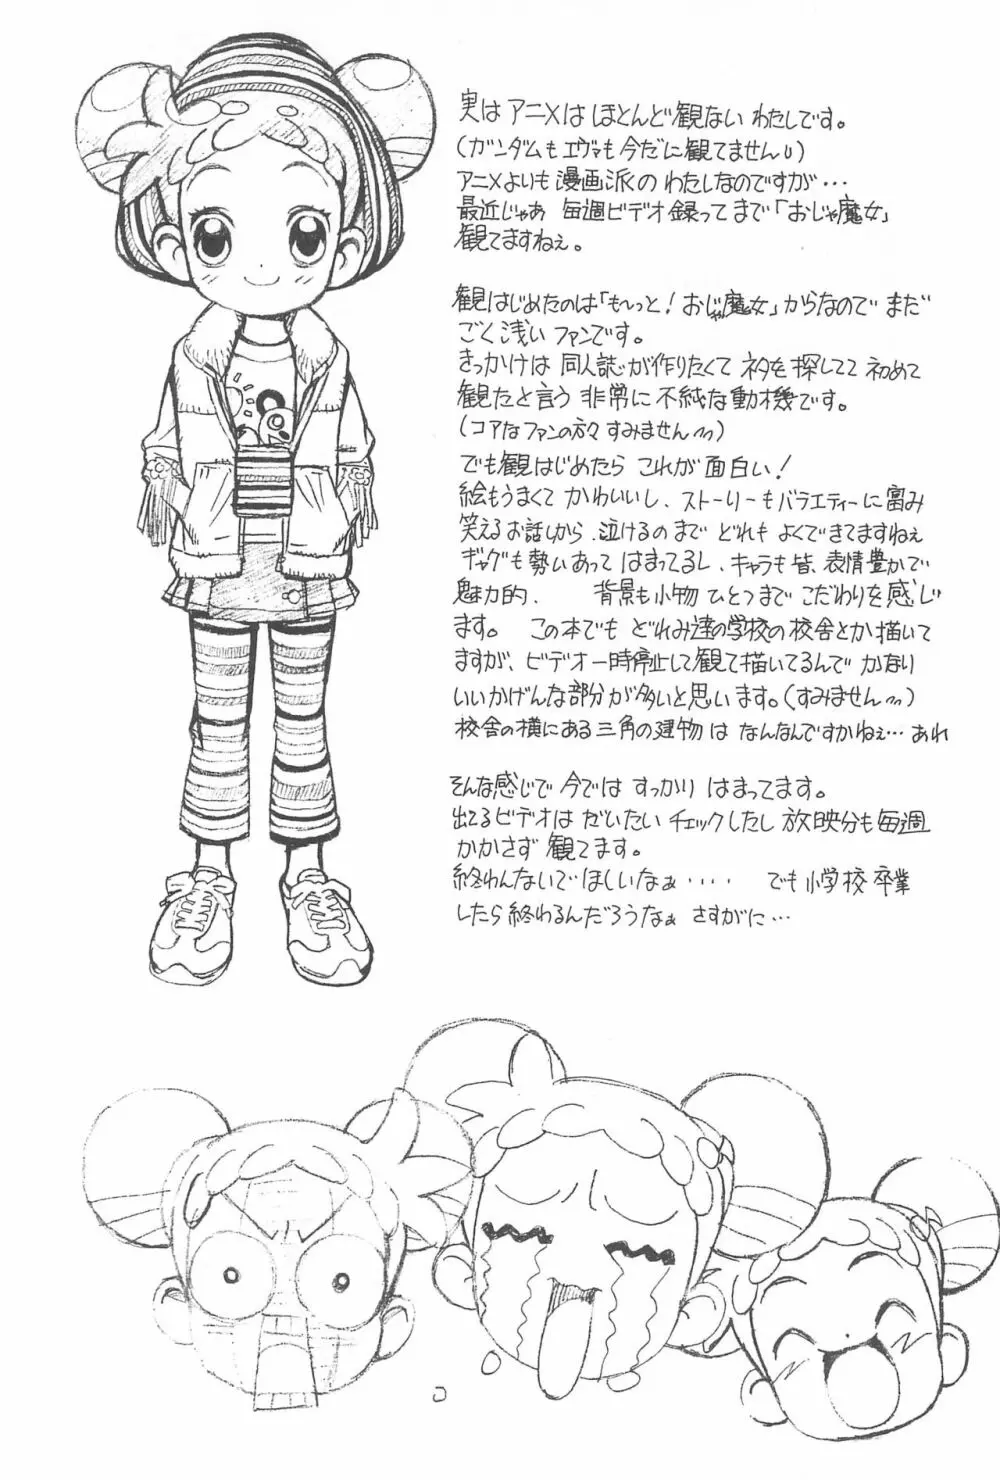 実は アニメは ほとんど観ない わたしです。
(ガンダムも エヴァも 今だに 観てません)
アニメよりも 漫画派の わたしなのですが…
最近じゃあ 毎週ビデオ録ってまで「おじゃ魔女」
観てますねぇ。
観はじめたのは「も〜っと! おじゃ魔女」からなので まだ
ごく浅い ファンです。
きっかけは 同人誌が作りたくて ネタを探してて 初めて
観たと言う 非常に 不純な動機です。
(コアなファンの方々 すみません)
でも観はじめたら これが 面白い!
絵もうまくて かわいいし、ストーリーもバラエティーに富み
笑えるお話しから、泣けるのまで どれも よくできてますねぇ
ギャグも勢いあって はまってるし、キャラも皆、表情豊かで
魅力的、 背景も小物 ひとつまで こだわりを感じ
ます。 この本でも どれみ達の学校の校舎とか描いて
ますが、ビデオ一時停止して観て描いてるんで かなり
いいかげんな部分が多いと思います。(すみません)
校舎の横にある三角の建物は なんなんですかねぇ… あれ
そんな感じで 今では すっかり はまってます。
出てるビデオは だいたい チェックしたし 放映分も毎週
かかさず 観てます。
終わんないで ほしいなぁ‥‥ でも 小学校 卒業
したら終わるんだろうなぁ さすがに…